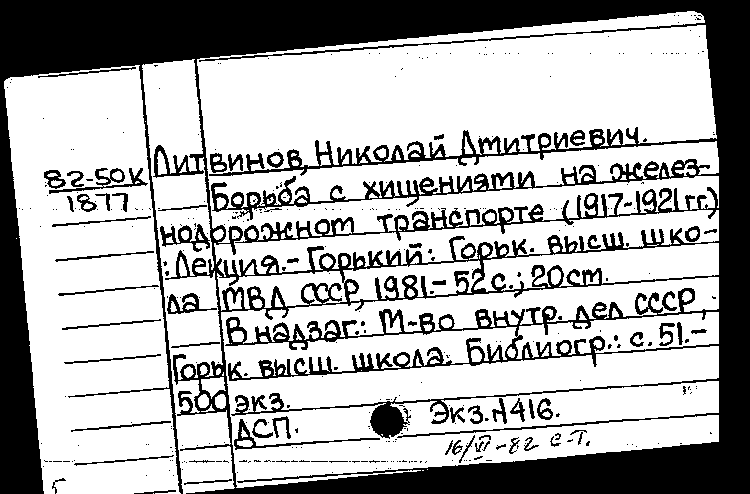 Литвинов, Николай Дмитриевич.
82-50К
1877
Борьба с хищениями на желез-
нодорожном транспорте (1917-1921 гг.)
: Лекция.- Горький: Горьк. высш. шко-
ла МВД СССР, 1981.- 52 с.; 20 cm.
В надзаг.: М-во внутр. дел СССР,
Горьк. высш. школа. Библиогр.: с. 51.-
500 экз.
ДСП. Экз. N416.
16/VI-82 С-Т.